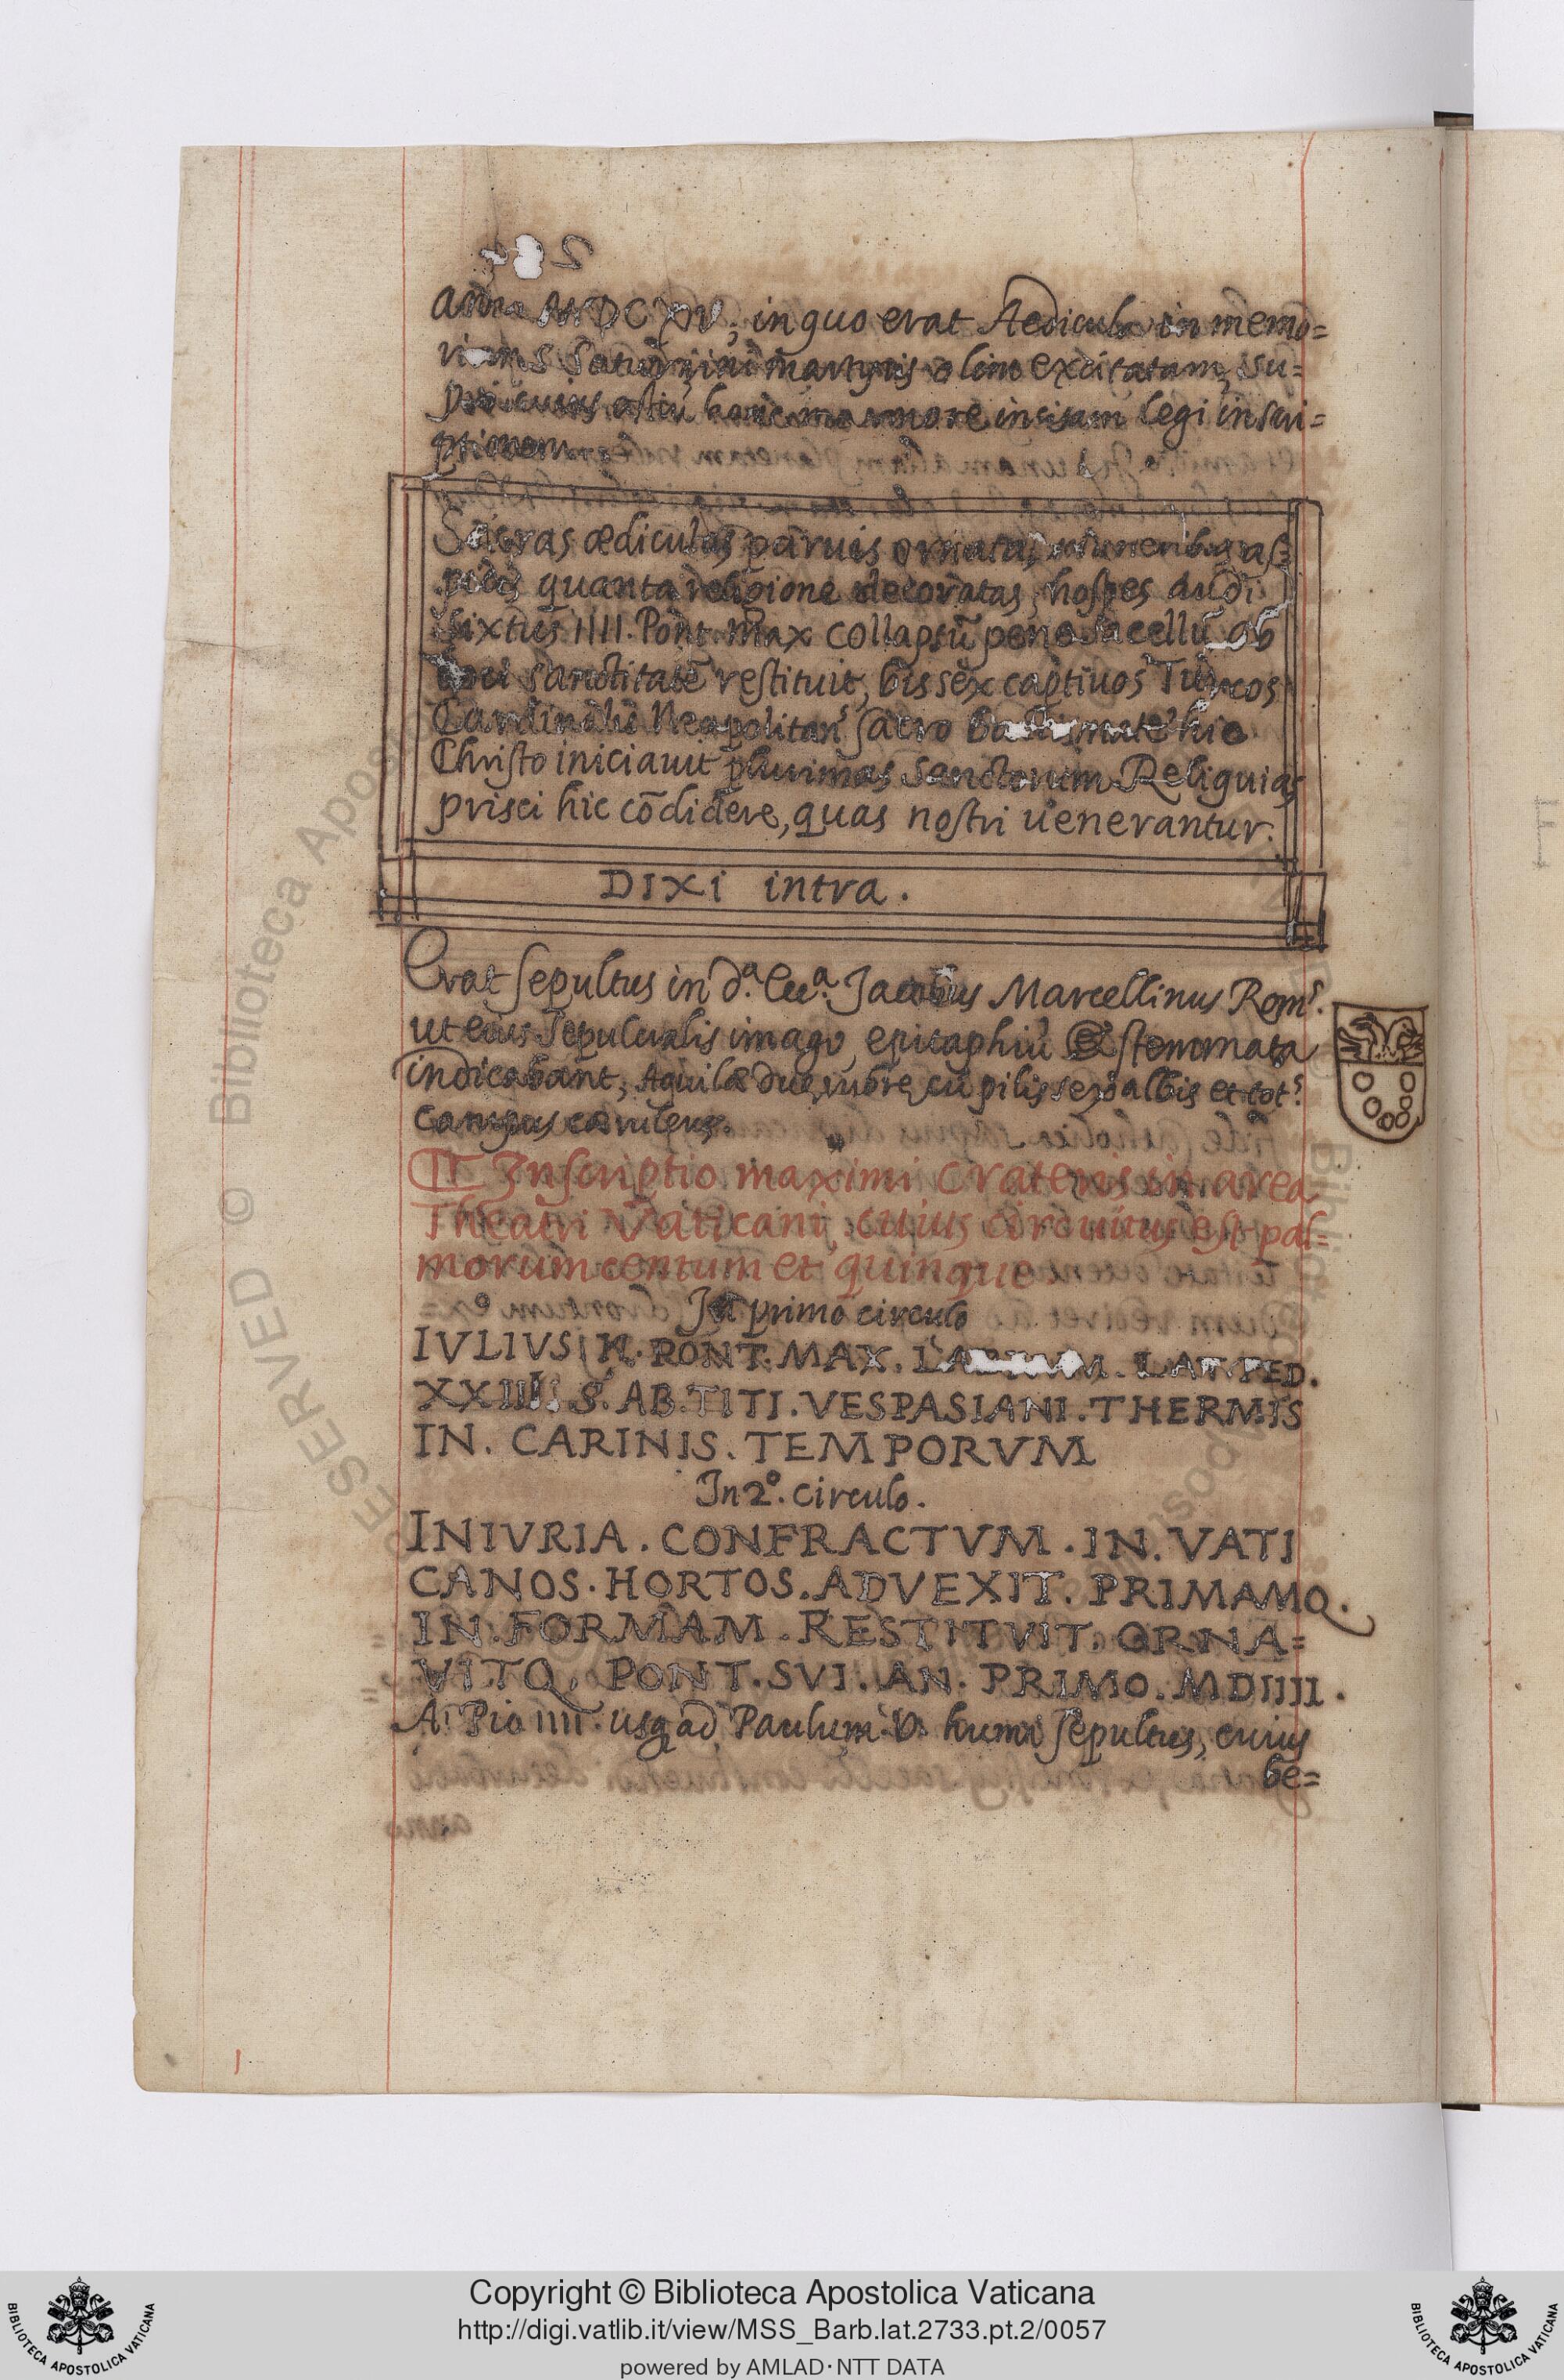 anno MDCXV; in quo erat Aedicula in memo=
riam S Saturnini martyris olim excitatam, su=
pra cuius ostiū hanc marmore incisam legi inscri=
ptionem.
Sacras ædiculas paruis ornatas muneribus as=
picis quanta religione decoratas, hospes audi
Sixtus IIII. Pont. Max collapsū pene sacellū ob
loci sanctitatē restituit, bis sex captiuos Turcos
Cardinalis Neapolitans sacro hic
Christo iniciauit plurimas Sanctorum Reliquias
prisci hic cōdidere, quas nostri uenerantur.
DIXI intra.
Erat sepultus in d.ª Ecc.ª Jacobus Marcellinus Roms.
ut eius sepulcralis imago, epitaphiū & stemmata
indicabant, Aquilæ due rubre cū pilis sex albis et tots
campus cæruleus.
Inscriptio maximi crateris in area
Theatri Vaticani, cuius circuitus est pal=
morum centum et quinque
In primo circulo
IVLIVS II. PONT. MAX. LABRVM. LAT. PED.
XXIIII. S. AB. TITI. VESPASIANI. THERMIS
IN. CARINIS. TEMPORVM
In 2º. circulo.
INIVRIA. CONFRACTVM. IN. VATI
CANOS. HORTOS. ADVEXIT. PRIMAMQ.
IN. FORMAM. RESTITVIT. ORNA=
VITQ. PONT. SVI. AN. PRIMO. MDIIII.
A Pio IIII. usq ad Paulum. V. humi sepultus, cuius
be=
Copyright © Biblioteca Apostolica Vaticana
http://digi.vatlib.it/view/MSS_Barb.lat.2733.pt.2/0057
powered by AMLAD·NTT DATA
BIBLIOTECA APOSTOLICA VATICANA
BIBLIOTECA APOSTOLICA VATICANA